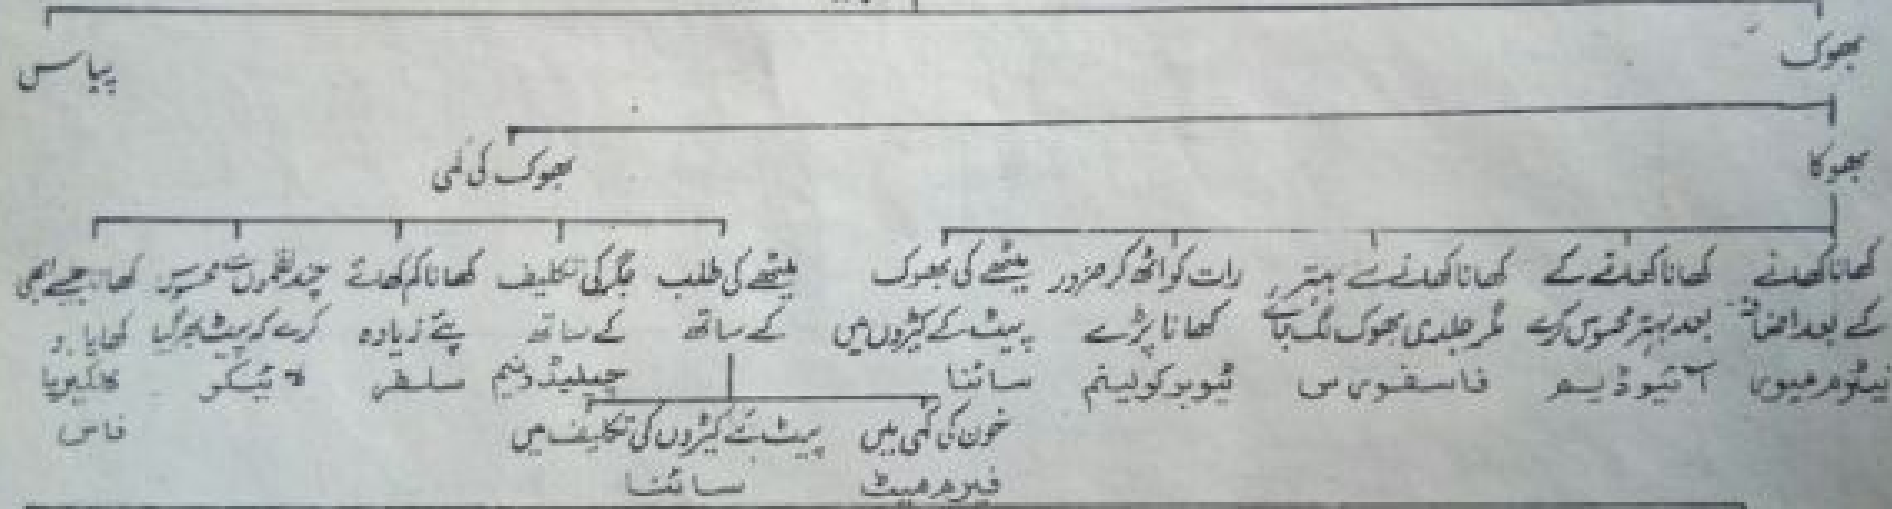 بھوک
پیاس
بھوکا
بھوک کی کمی
کھانا کھانے کے بعد اضافہ نیٹرم میوی
کھانا کھانے کے بعد بہتر محسوس کرے آئیوڈیم
کھانا کھانے سے بہتر، مگر جلدی بھوک لگ جائے فاسفورس
رات کو اٹھ کر ضرور کھانا پڑے ٹیوبرکولینم
میٹھے کی بھوک پیٹ کے کیڑوں میں سائنا
میٹھے کی طلب کے ساتھ
جگر کی تکلیف کے ساتھ چیلیڈونیم
کھانا کم کھائے پئے زیادہ سلفر
چند لقموں سے محسوس کرے کہ پیٹ بھر گیا لائیکو
کھانا جیسے ابھی کھایا ہو کلکیریا فاس
خون کی کمی میں فیرم میٹ
پیٹ کے کیڑوں کی تکلیف میں سائنا